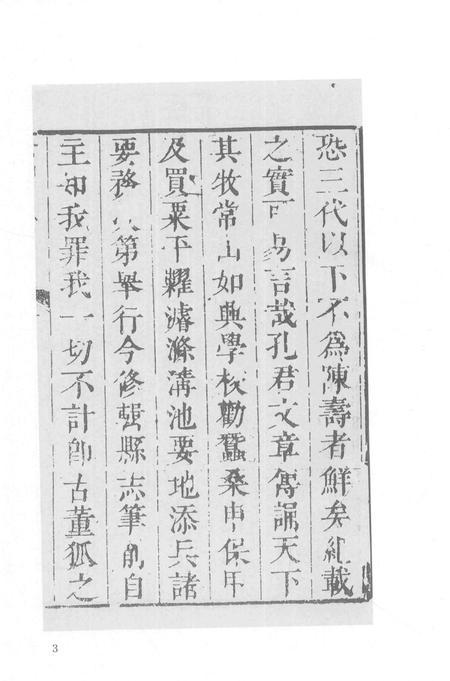 恐三代以下不為陳壽者鮮矣紀載
之實可易言哉孔君文章傳誦天下
其牧常山如興學校勸蠶桑申保甲
及買粟平糶濬滌溝池要地添兵諸
要務次第舉行今修縣志筆削自
主知我罪我一切不計卽古董狐之
3